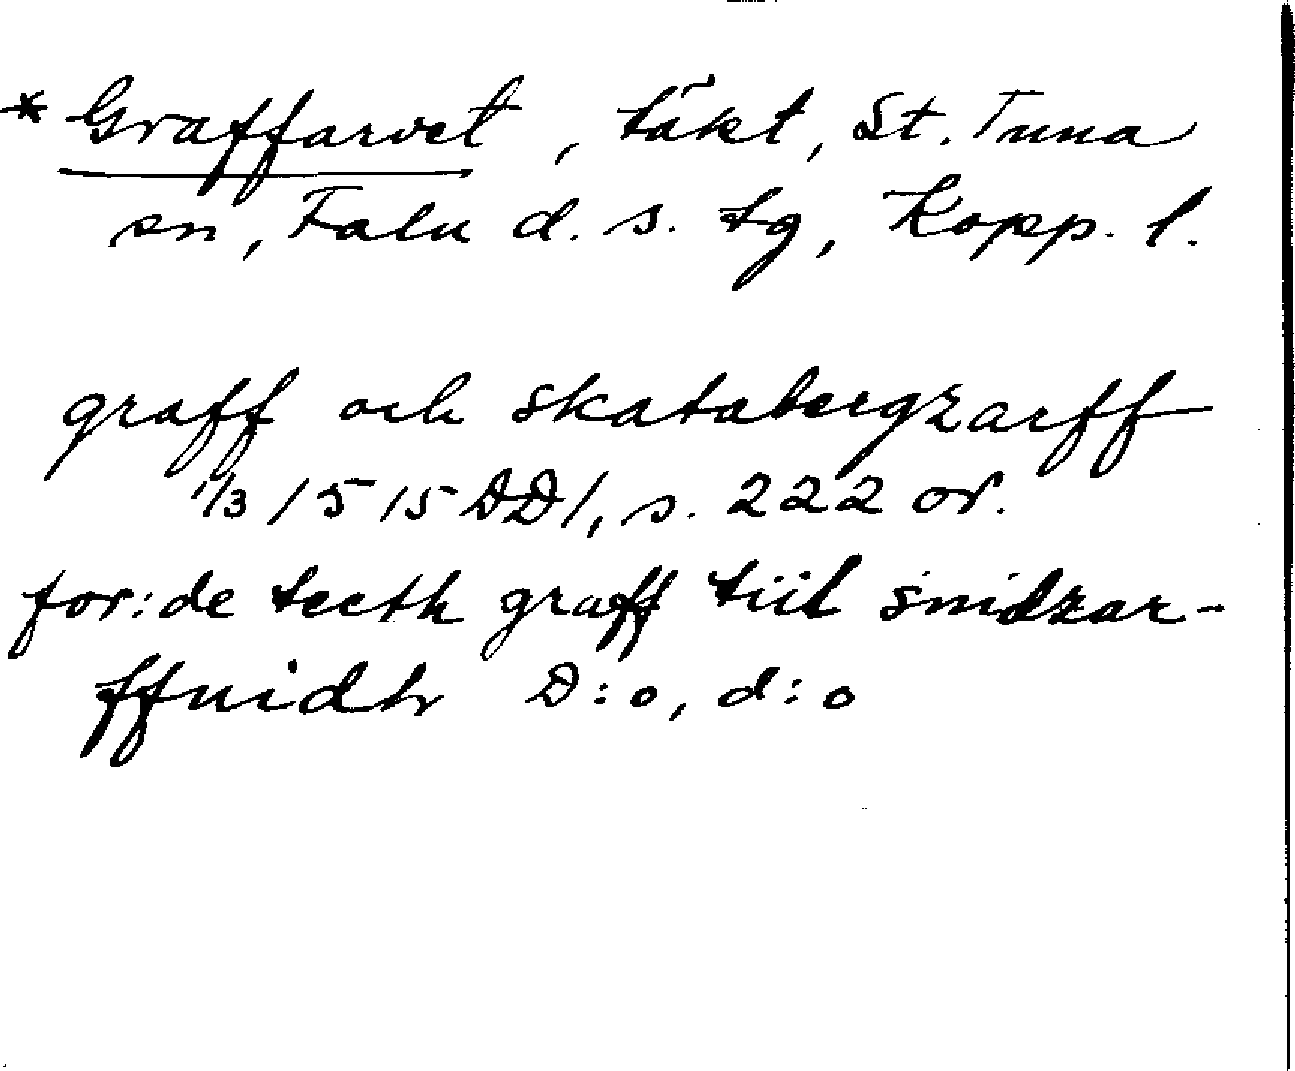 * Graffarvet, täkt, St. Tuna
sn, Falu d. s. tg, Kopp. l.
graff och skatabergzarff
1/3 1515 DD1, s. 222 or.
for:de teeth graff tiil smidzar-
ffuidh D:o, d:o